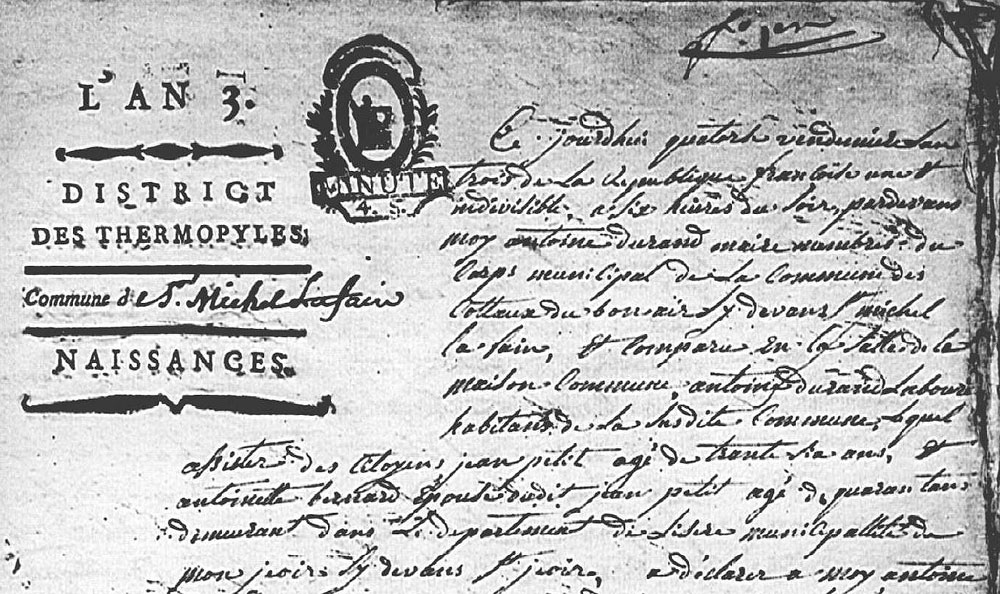 L'AN 3.
DISTRICT
DES THERMOPYLES,
Commune de St. Michel Lafain
NAISSANCES.
MINUTE
4. S.
Ce jourdhui quatorze vendemiere Lan
trois de La Republique françoise une et
indivisible, a six hieures du soir, pardevans
moy antoine durand maire membres du
Corps municipal de La Commune des
Cottaux du bon air Sy devans St michel
La fain, Et Compare En La Salle de la
maison Commune, antoine durand Laboure
habitans de La Susdite Commune, Lequel
assister des Citoyens jean petit agé de trante six ans, et
antoinette bernard Epouse dudit jean petit agé de quarantans
demeurant dans Le departement de Lisere municipallité de
mon jeoir Sy devans St jeoir, a déclarer a moy antoine